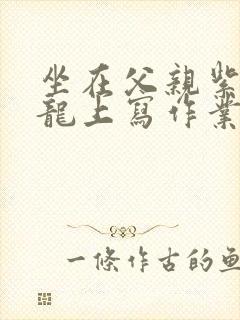 坐在父親紫
龍上寫作業
一條作古的魚